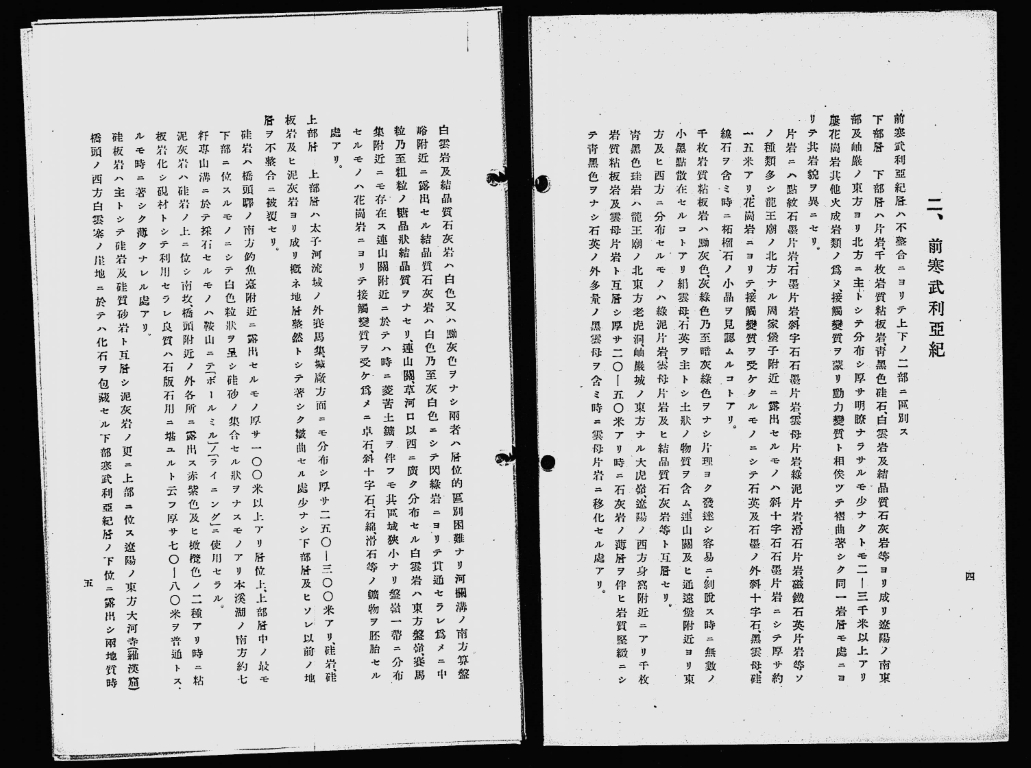 二、前寒武利亞紀
前寒武利亞紀層ハ不整合ニヨリテ上下ノ二部ニ區別ス
下部層　下部層ハ片岩、千枚岩質粘板岩、靑黑色硅石白雲岩及結晶質石灰岩等ヨリ成リ遼陽ノ南東
部及岫巖ノ東方ヨリ北方ニ主トシテ分布シ厚サ明瞭ナラサルモ少ナクトモ二―三千米以上アリ
屢花崗岩其他火成岩類ノ爲メ、接觸變質ヲ蒙リ動力變質ト相俟ツテ褶曲著シク同一岩層モ處ニヨ
リテ其岩貌ヲ異ニセリ。
片岩ニハ點紋石墨片岩、石墨片岩、斜字石石墨片岩、雲母片岩、綠泥片岩、滑石片岩、磁鐵石英片岩等ソ
ノ種類多シ龍王廟ノ北方ナル周家堡子附近ニ露出セルモノハ斜十字石石墨片岩ニシテ厚サ約
一五米アリ、花崗岩ニヨリテ、接觸變質ヲ受ケタルモノニシテ石英及石墨ノ外斜十字石、黑雲母、硅
線石ヲ含ミ時ニ柘榴石ノ小晶ヲ見認ムルコトアリ。
千枚岩質粘板岩ハ黝灰色、灰綠色乃至暗灰綠色ヲナシ片理ヨク發達シ容易ニ剝脫ス時ニ無數ノ
小黑點散在セルコトアリ絹雲母、石英ヲ主トシ土狀ノ物質ヲ含ム、連山關及ヒ通遠堡附近ヨリ東
方及ヒ西方ニ分布セルモノハ綠泥片岩、雲母片岩及ヒ結晶質石灰岩等ト互層セリ。
靑黑色珪岩ハ龍王廟ノ北東方老虎洞、岫巖城ノ東方ナル大虎嶺、遼陽ノ西方身窩附近ニアリ千枚
岩質粘板岩及雲母片岩ト互層シ厚サ二〇―五〇米アリ時ニ石灰岩ノ薄層ヲ伴ヒ岩質堅緻ニシ
テ靑黑色ヲナシ石英ノ外多量ノ黑雲母ヲ含ミ時ニ雲母片岩ニ移化セル處アリ。
四
白雲岩及結晶質石灰岩ハ白色又ハ黝灰色ヲナシ兩者ハ層位的區別困難ナリ河欄溝ノ南方算盤
峪附近ニ露出セル結晶質石灰岩ハ白色乃至灰白色ニシテ閃綠岩ニヨリテ貫通セラレ爲メニ中
粒乃至粗粒ノ糖晶狀結晶質ヲナセリ、連山關、草河口以西ニ廣ク分布セル白雲岩ハ東方盤嶺、賽馬
集附近ニモ存在ス連山關附近ニ於テハ時ニ菱苦土鑛ヲ伴フモ其區域狹小ナリ盤嶺一帶ニ分布
セルモノハ花崗岩ニヨリテ接觸變質ヲ受ケ爲メニ卓石、斜十字石、石綿、滑石等ノ鑛物ヲ胚胎セル
處アリ。
上部層　上部層ハ太子河流城ノ外賽馬集、城廠方面ニモ分布シ厚サ二五〇―三〇〇米アリ、硅岩、硅
板岩及ヒ泥灰岩ヨリ成リ槪ネ地層整然トシテ著シク皺曲セル處少ナシ下部層及ヒソレ以前ノ地
層ヲ不整合ニ被覆セリ。
硅岩ハ橋頭驛ノ南方釣魚臺附近ニ露出セルモノ厚サ一〇〇米以上アリ層位上、上部層中ノ最モ
下部ニ位スルモノニシテ白色粒狀ヲ呈シ硅砂ノ集合セル狀ヲナスモノアリ本溪湖ノ南方約七
粁專山溝ニ於テ採石セルモノハ鞍山ニテ「ボールミル」ノ「ライニング」ニ使用セラル。
泥灰岩ハ硅岩ノ上ニ位シ南坎、橋頭附近ノ外各所ニ露出ス赤紫色及ヒ橄欖色ノ二種アリ時ニ粘
板岩化シ硯材トシテ利用セラレ良質ハ石版石用ニ堪ユルト云フ厚サ七〇―八〇米ヲ普通トス、
ルモ時ニ著シク薄クナレル處アリ。
硅板岩ハ主トシテ硅岩及硅質砂岩ト互層シ泥灰岩ノ更ニ上部ニ位ス遼陽ノ東方大河寺(羅漢窟)
橋頭ノ西方白雲寨ノ崖地ニ於テハ化石ヲ包藏セル下部寒武利亞紀層ノ下位ニ露出シ兩地質時
五